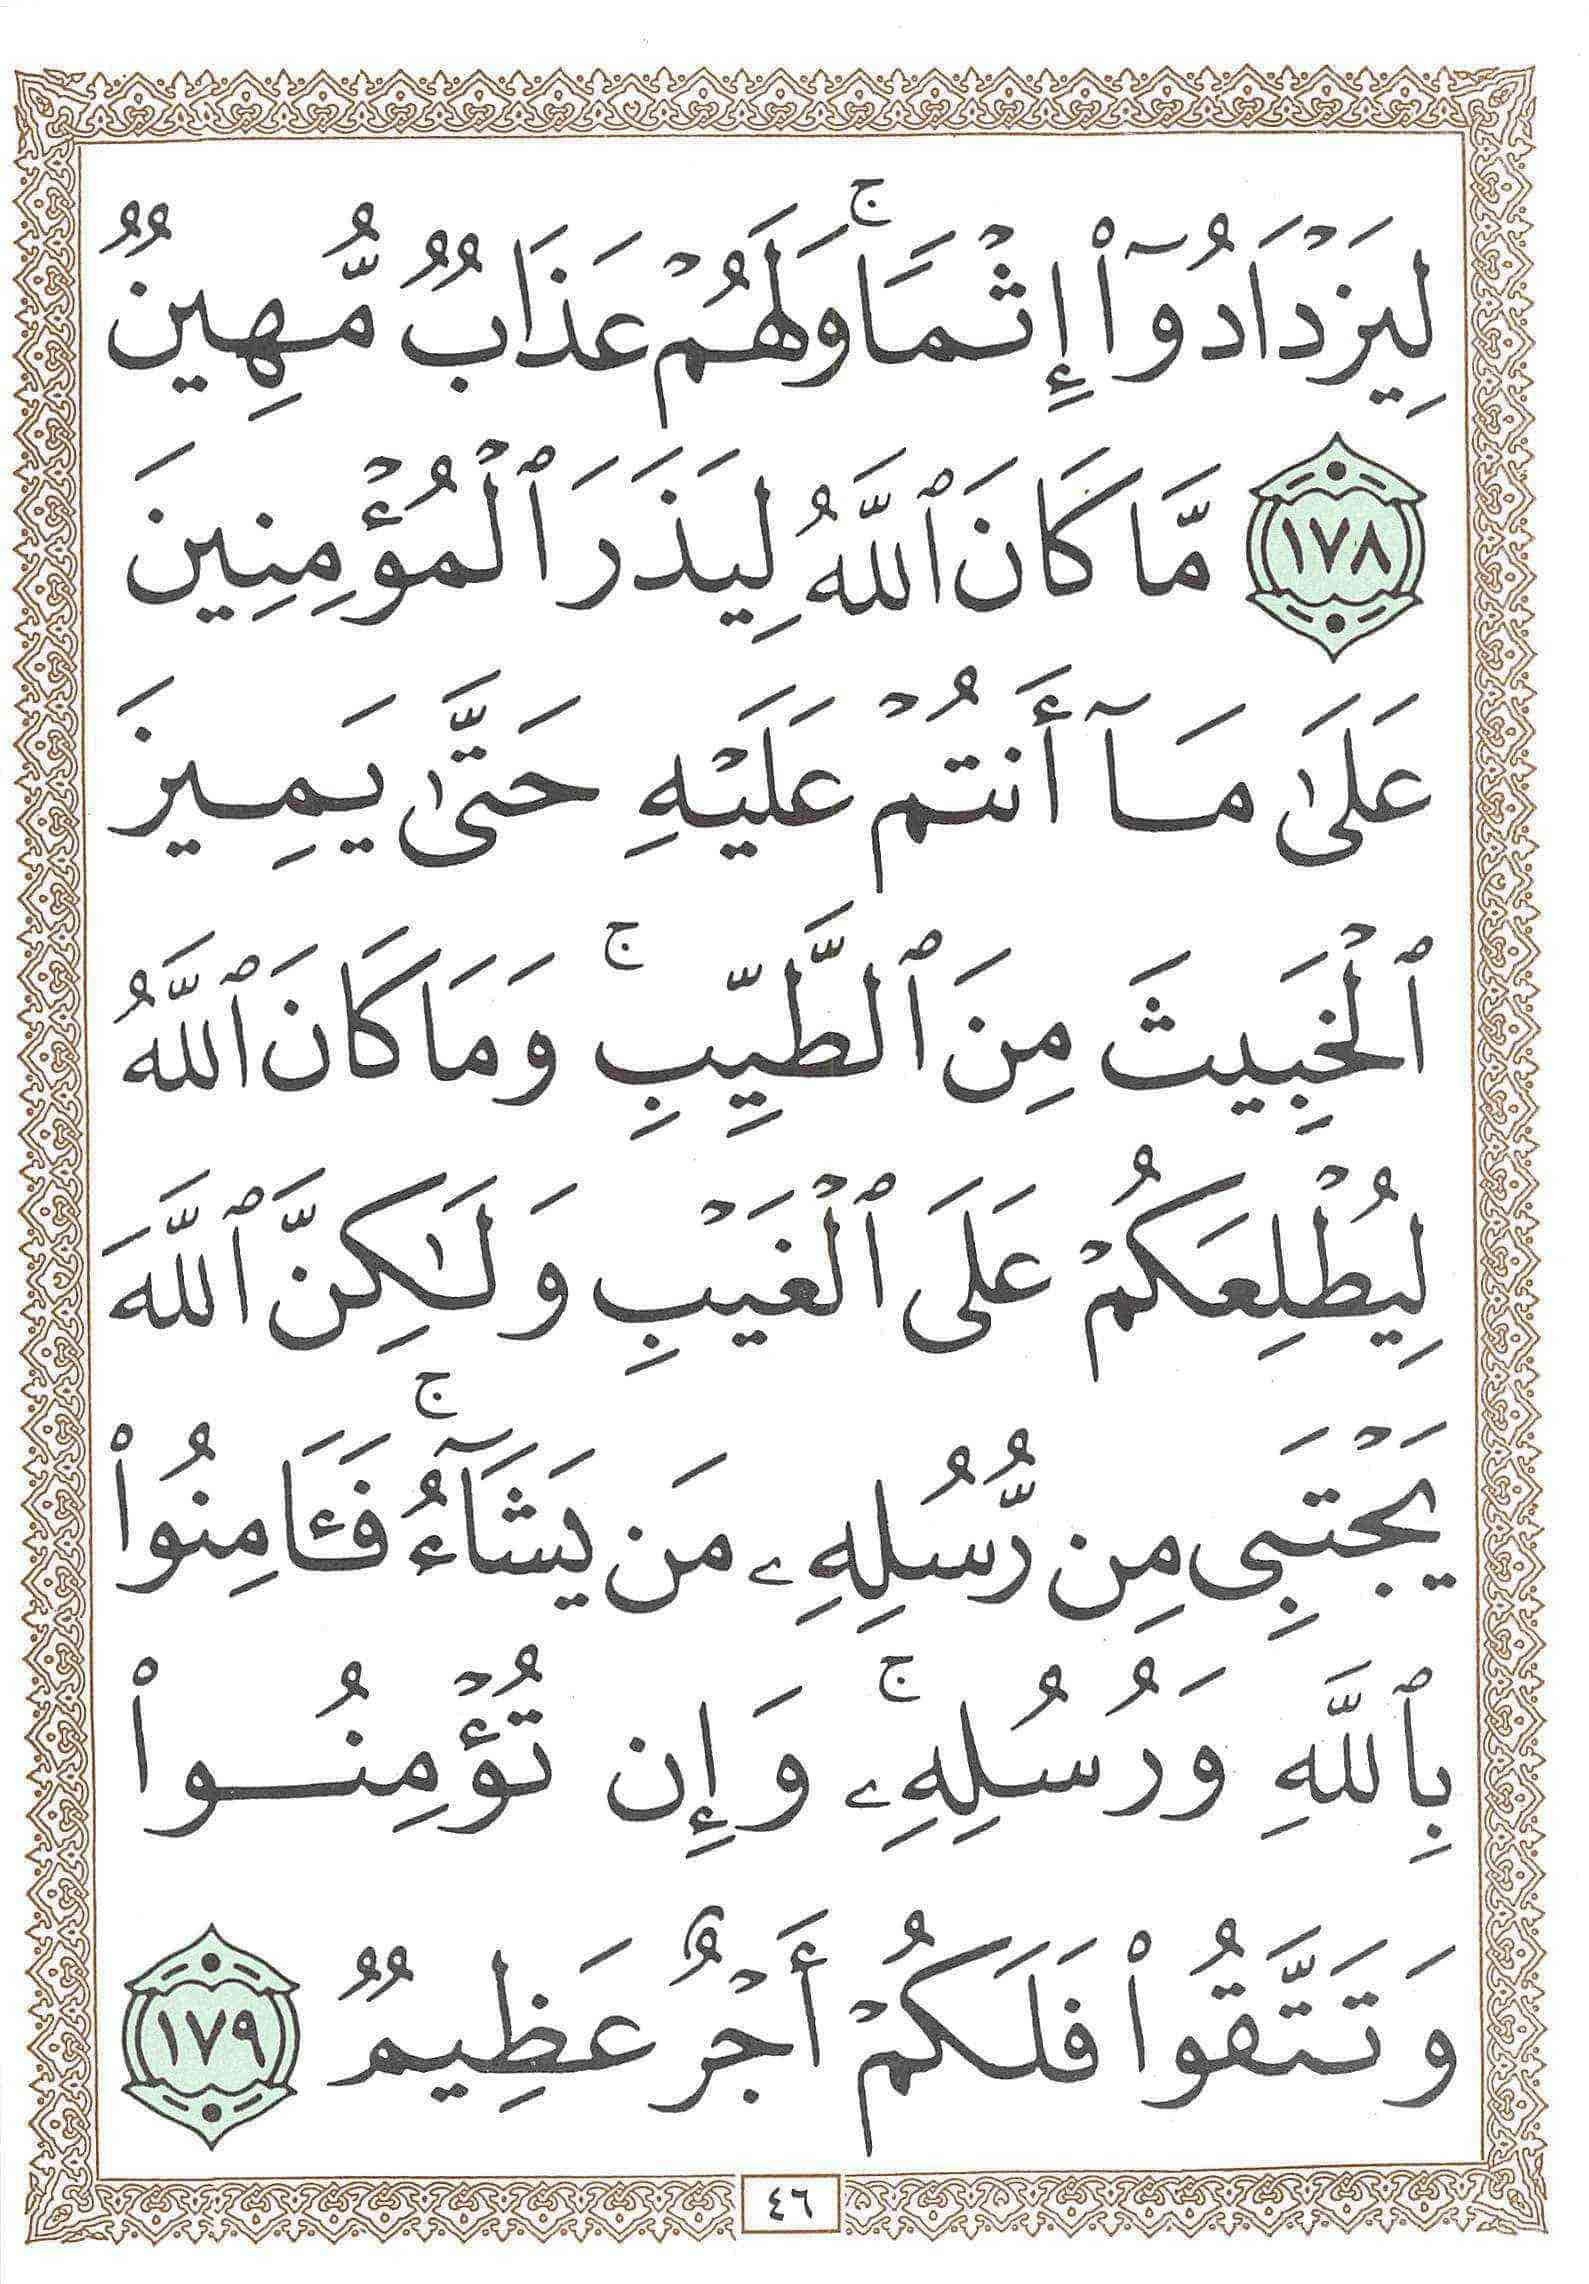 لِيَزْدَادُوٓا۟ إِثْمًاۚ وَلَهُمْ عَذَابٌ مُّهِينٌ
١٧٨ مَّا كَانَ ٱللَّهُ لِيَذَرَ ٱلْمُؤْمِنِينَ
عَلَىٰ مَآ أَنتُمْ عَلَيْهِ حَتَّىٰ يَمِيزَ
ٱلْخَبِيثَ مِنَ ٱلطَّيِّبِۚ وَمَا كَانَ ٱللَّهُ
لِيُطْلِعَكُمْ عَلَى ٱلْغَيْبِ وَلَـٰكِنَّ ٱللَّهَ
يَجْتَبِى مِن رُّسُلِهِۦ مَن يَشَآءُۚ فَـَٔامِنُوا۟
بِٱللَّهِ وَرُسُلِهِۦۚ وَإِن تُؤْمِنُوا۟
وَتَتَّقُوا۟ فَلَكُمْ أَجْرٌ عَظِيمٌ ١٧٩
٤٦